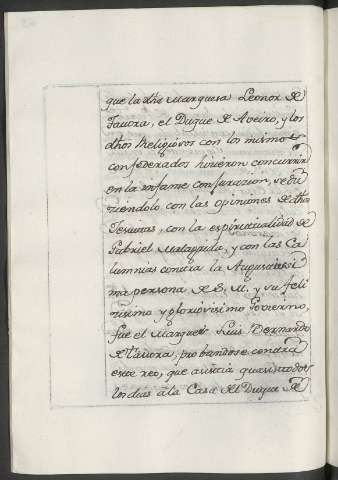 que la dha Marquesa Leonor de
Tavora, el Duque de Aveiro, y los
dhos Religiosos con los mismos
confederados hicieron concurrir
en la infame conjuracion, sedu
ziendolo con las opiniones de dhos
Jesuitas, con la espiritualidad de
Gabriel Malagrida, y con las Ca
lumnias contra la Augustissi
ma persona de S. M. y su feli
zisimo y gloriosisimo Govierno,
fue el Marques Luis Bernardo
de Tavora, probandose contra
este reo, que asistia quasi todos
los dias a la Casa del Duque de